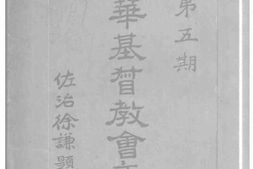 第五期
華基督教會
佐治徐謙題